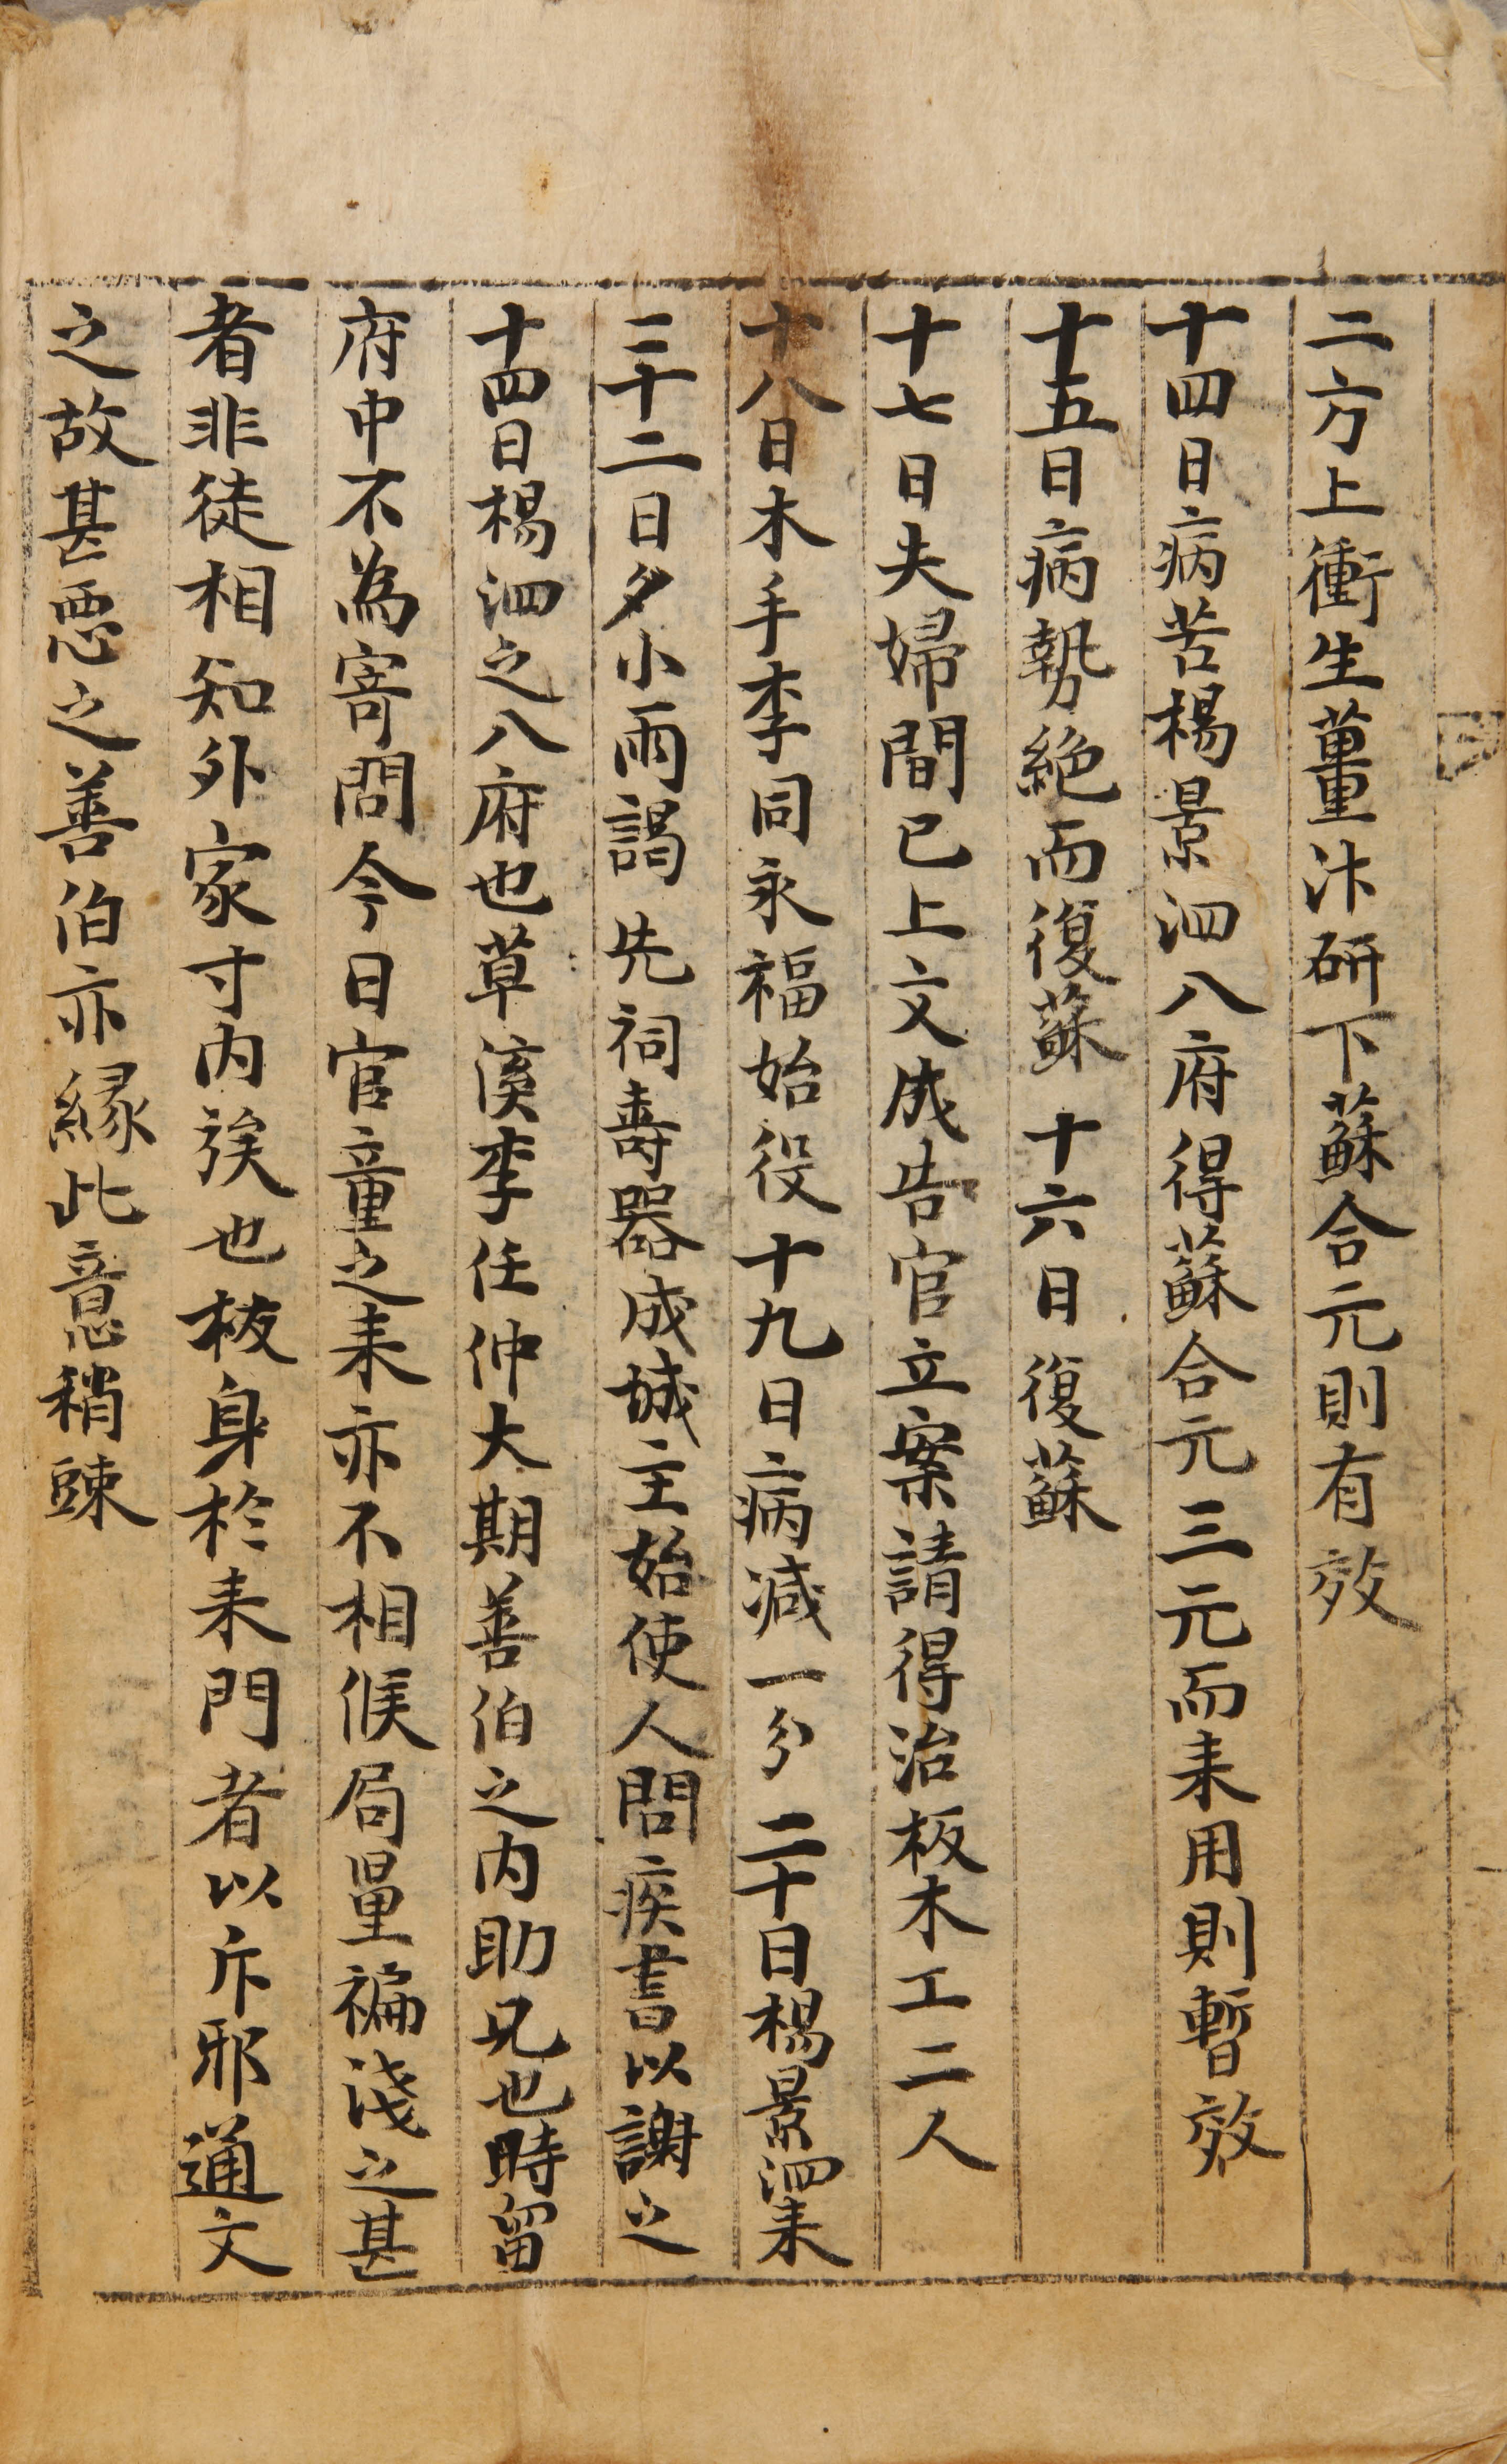 二方上衝生薑汁研下蘇合元則有效
十四日病苦楊景泗入府得蘇合元三元而来用則暫效
十五日病勢絶而復蘇 十六日復蘇
十七日夫婦間已上文成告官立案請得治板木工二人
十八日木手李同永福始役十九日病減一分二十日楊景泗来
二十二日夕小雨謁 先祠壽器成城主始使人問疾書以謝之
十四日楊泗之入府也草溪李任仲大期善伯之内助兄也時留
府中不為寄問今日官童之来亦不相候局量褊淺之甚
者非徒相知外家寸内族也拔身於来門者以斥邪通文
之故甚惡之善伯亦緣此意稍踈